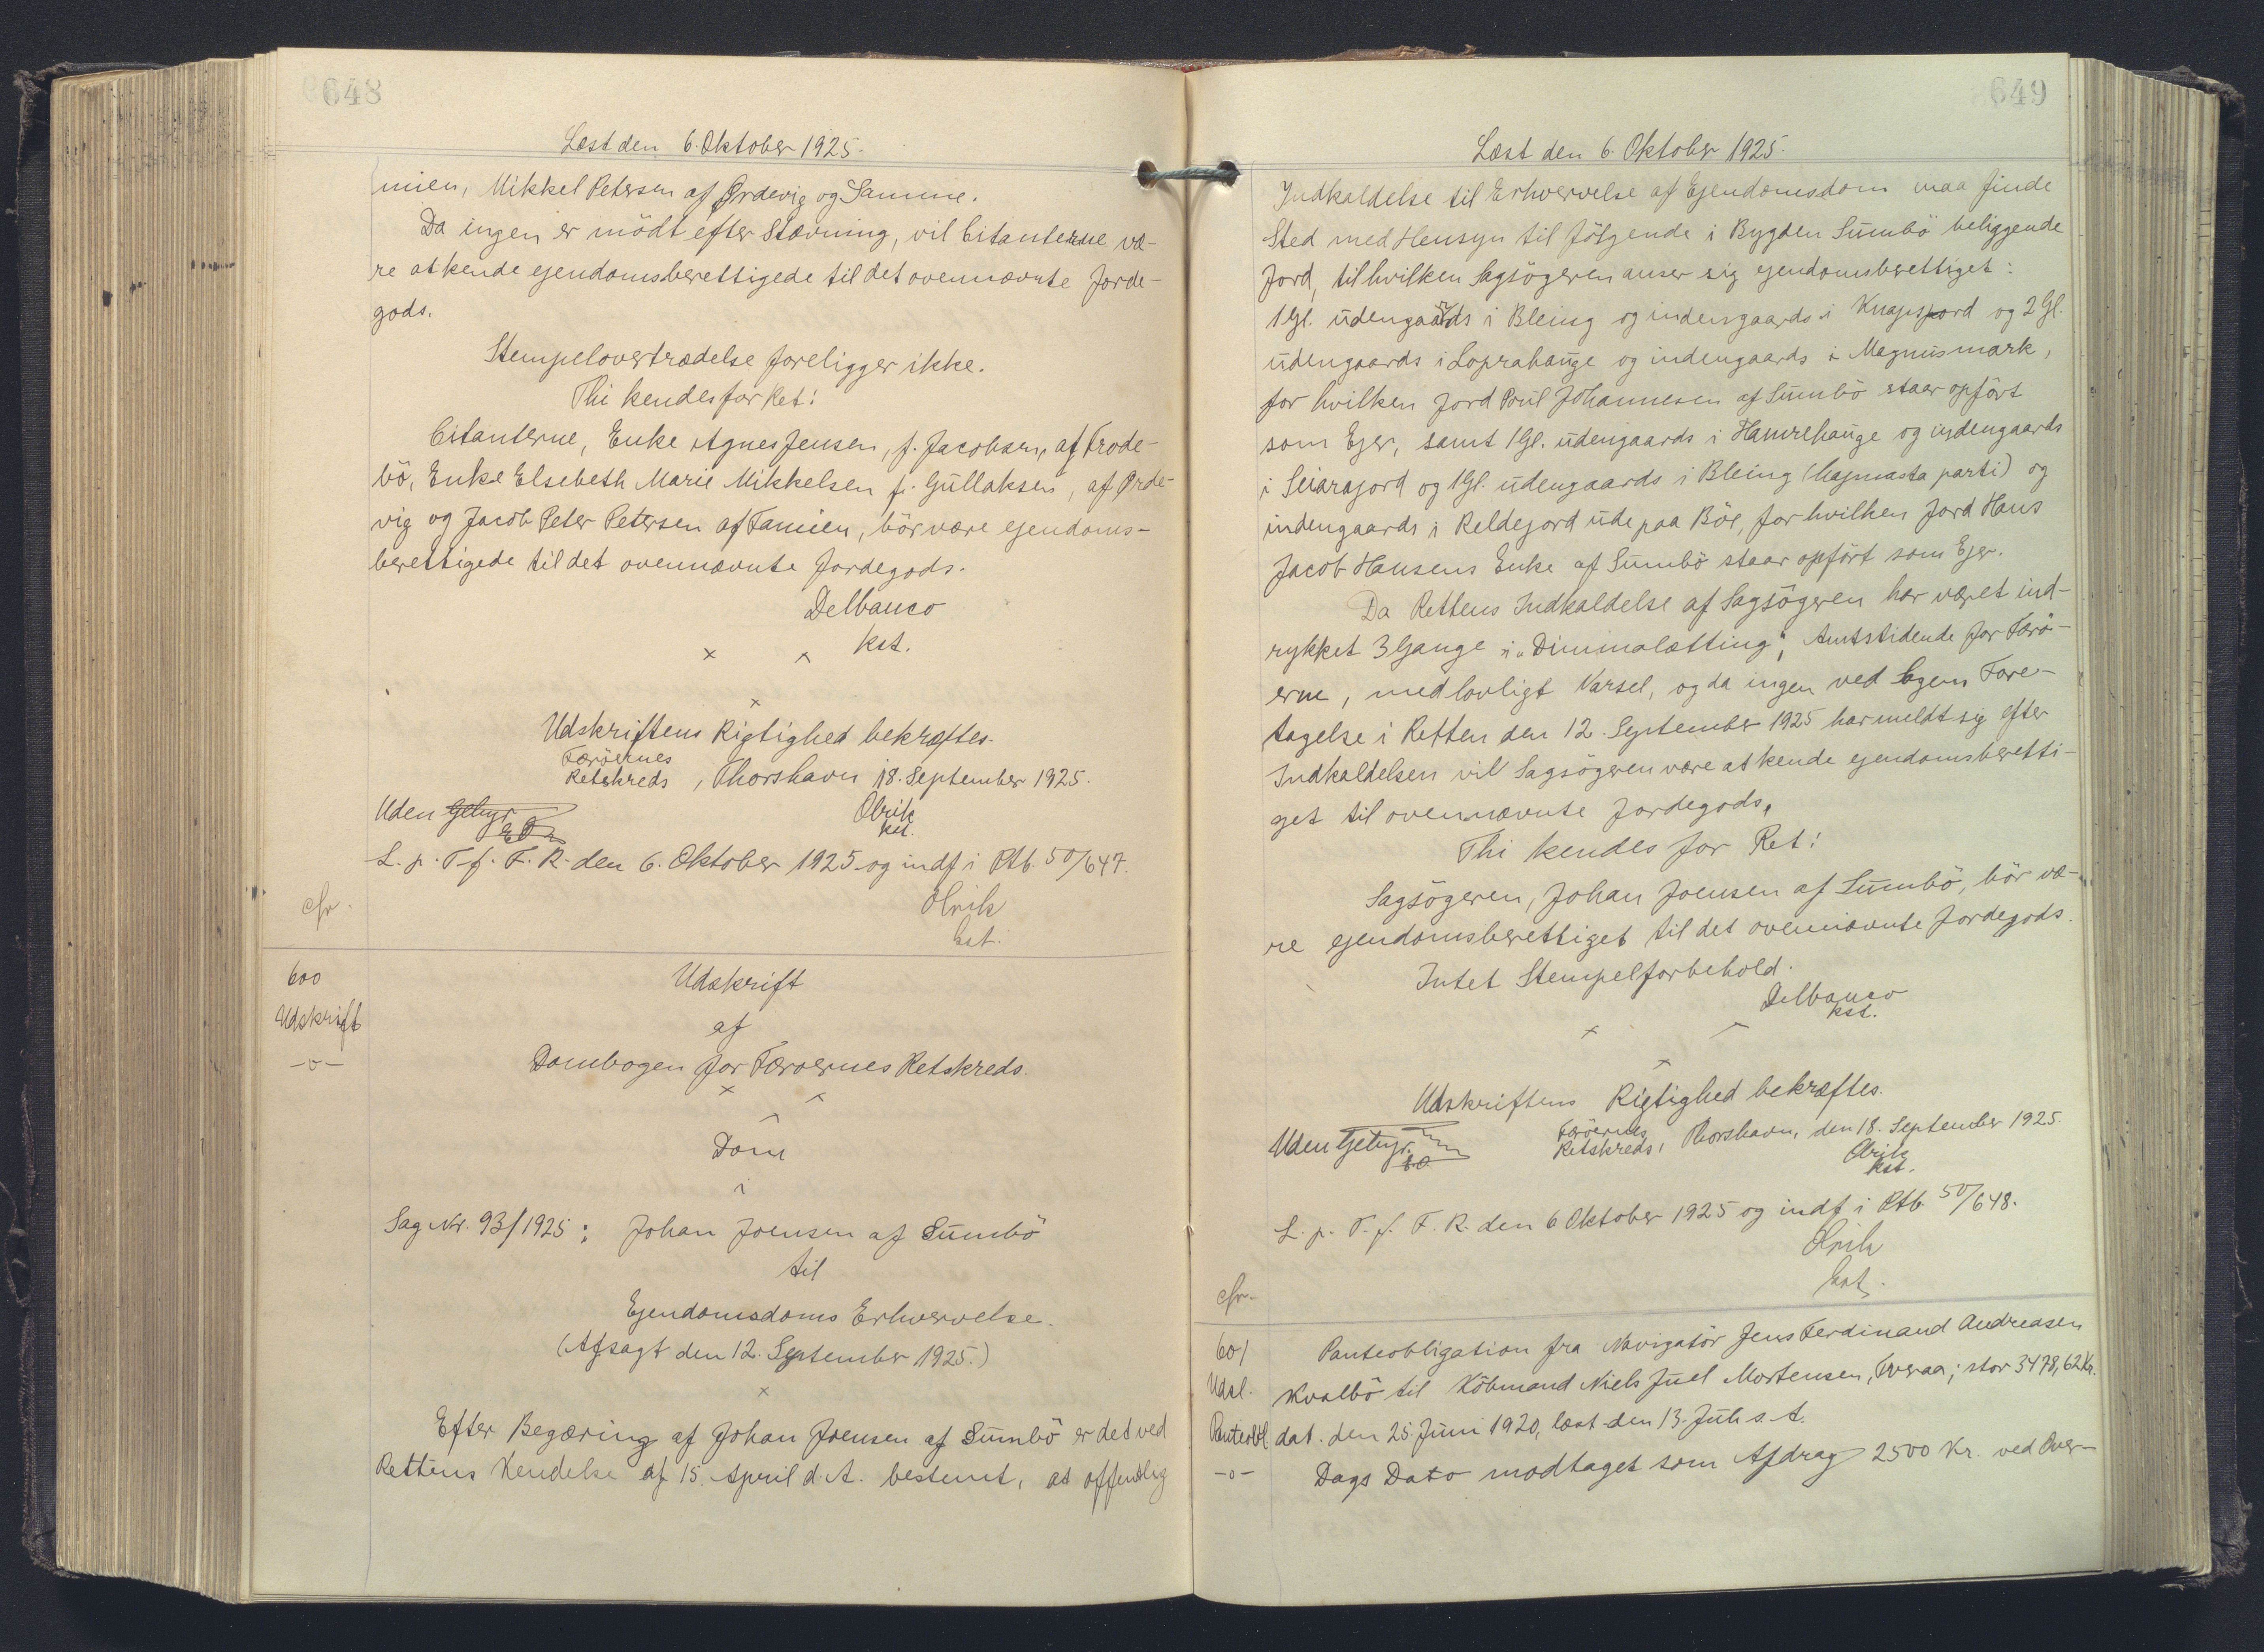 648
Læst den 6. Oktober 1925.
mien, Mikkel Petersen af Ørdevig og Samme.
Da ingen er mödt efter Stævning, vil Citanterne væ-
re at kende ejendomsberettigede til det ovennævnte Jorde-
gods.
Stempelovertrædelse foreligger ikke.
Thi kendes for Ret:
Citanterne, Enke Agnes Jensen, f. Jacobsen, af Frode-
bö, Enke Elsebeth Marie Mikkelsen f. Gullaksen, af Ørde-
vig og Jacob Peter Petersen af Famien, bör være ejendoms-
berettigede til det ovennævnte Jordegods.
Delbanco
kst.
Udskriftens Rigtighed bekræftes.
Færöernes
Retskreds, Thorshavn 18. September 1925.
Uden Gebyr
Olrik
kst.
L. p. T. f. F. R. den 6. Oktober 1925 og indf i Ptb. 50/647.
Olrik
kst.
cfr.
600
Udskrift
-o-
Udskrift
af
Dombogen for Færöernes Retskreds.
Dom
i
Sag Nr. 93/1925: Johan Joensen af Sumbö
til
Ejendomsdoms Erhvervelse.
(Afsagt den 12. September 1925.)
Efter Begæring af Johan Joensen af Sumbö er det ved
Rettens Kendelse af 15. April d. A. bestemt, at offentlig
649
Læst den 6. Oktober 1925.
Indkaldelse til Erhvervelse af Ejendomsdom maa finde
Sted med Hensyn til fölgende i Bygden Sumbö beliggende
Jord, til hvilken Sagsögeren anser sig ejendomsberettiget:
1 Gl. udengaards i Bleing og indengaards i Knapsjord og 2 Gl.
udengaards i Loprahauge og indengaards i Magnusmark,
for hvilken Jord Poul Johannesen af Sumbö staar opfört
som Ejer, samt 1 Gl. udengaards i Hamrehauge og indengaards
i Seiarajord og 1 Gl. udengaards i Bleing (Hajmasta parti) og
indengaards i Reldejord ude paa Böe, for hvilken Jord Hans
Jacob Hansens Enke af Sumbö staar opfört som Ejer.
Da Rettens Indkaldelse af Sagsögeren har været ind-
rykket 3 Gange i "Dimmalætting", Amtstidende for Færö-
erne, med lovligt Varsel, og da ingen ved Sagens Fore-
tagelse i Retten den 12. September 1925 har meldt sig efter
Indkaldelsen vil Sagsögeren være at kende ejendomsberetti-
get til ovennævnte Jordegods,
Thi kendes for Ret:
Sagsögeren, Johan Joensen af Sumbö, bör væ-
re ejendomsberettiget til det ovennævnte Jordegods.
Intet Stempelforbehold.
Delbanco
kst.
Udskriftens Rigtighed bekræftes.
Færöernes
Retskreds, Thorshavn, den 18. September 1925.
Uden Gebyr.
Olrik
kst.
L. p. T. f. F. R. den 6 Oktober 1925 og indf i Ptb 50/648.
Olrik
kst.
cfr.
601
Udsl.
Panteobl
-o-
Panteobligation fra Navigatör Jens Ferdinand Andreasen
Kvalbö til Köbmand Niels Juel Mortensen, Tveraa; stor 3478,62 Kr.
dat. den 25. Juni 1920, læst den 13. Juli s. A.
Dags Dato modtaget som Afdrag 2500 Kr. ved Over-